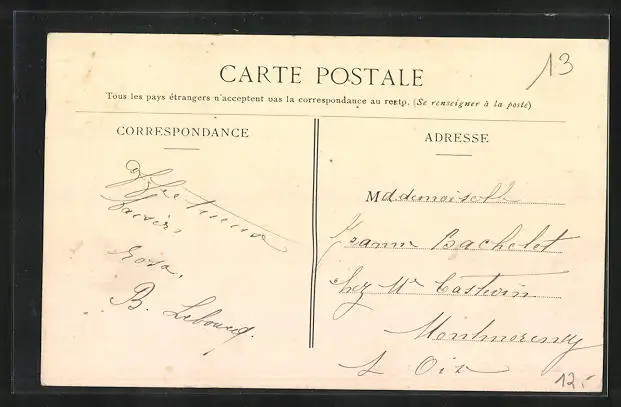 13
CARTE POSTALE
Tous les pays étrangers n'acceptent pas la correspondance au recto. (Se renseigner à la poste)
CORRESPONDANCE
ADRESSE
Affectueux
baisers,
Rosa.
B. Lebourcq.
Mademoiselle
Jeanne Bachelet
chez Mr Castevin
Montmorency
S Oise
12.-